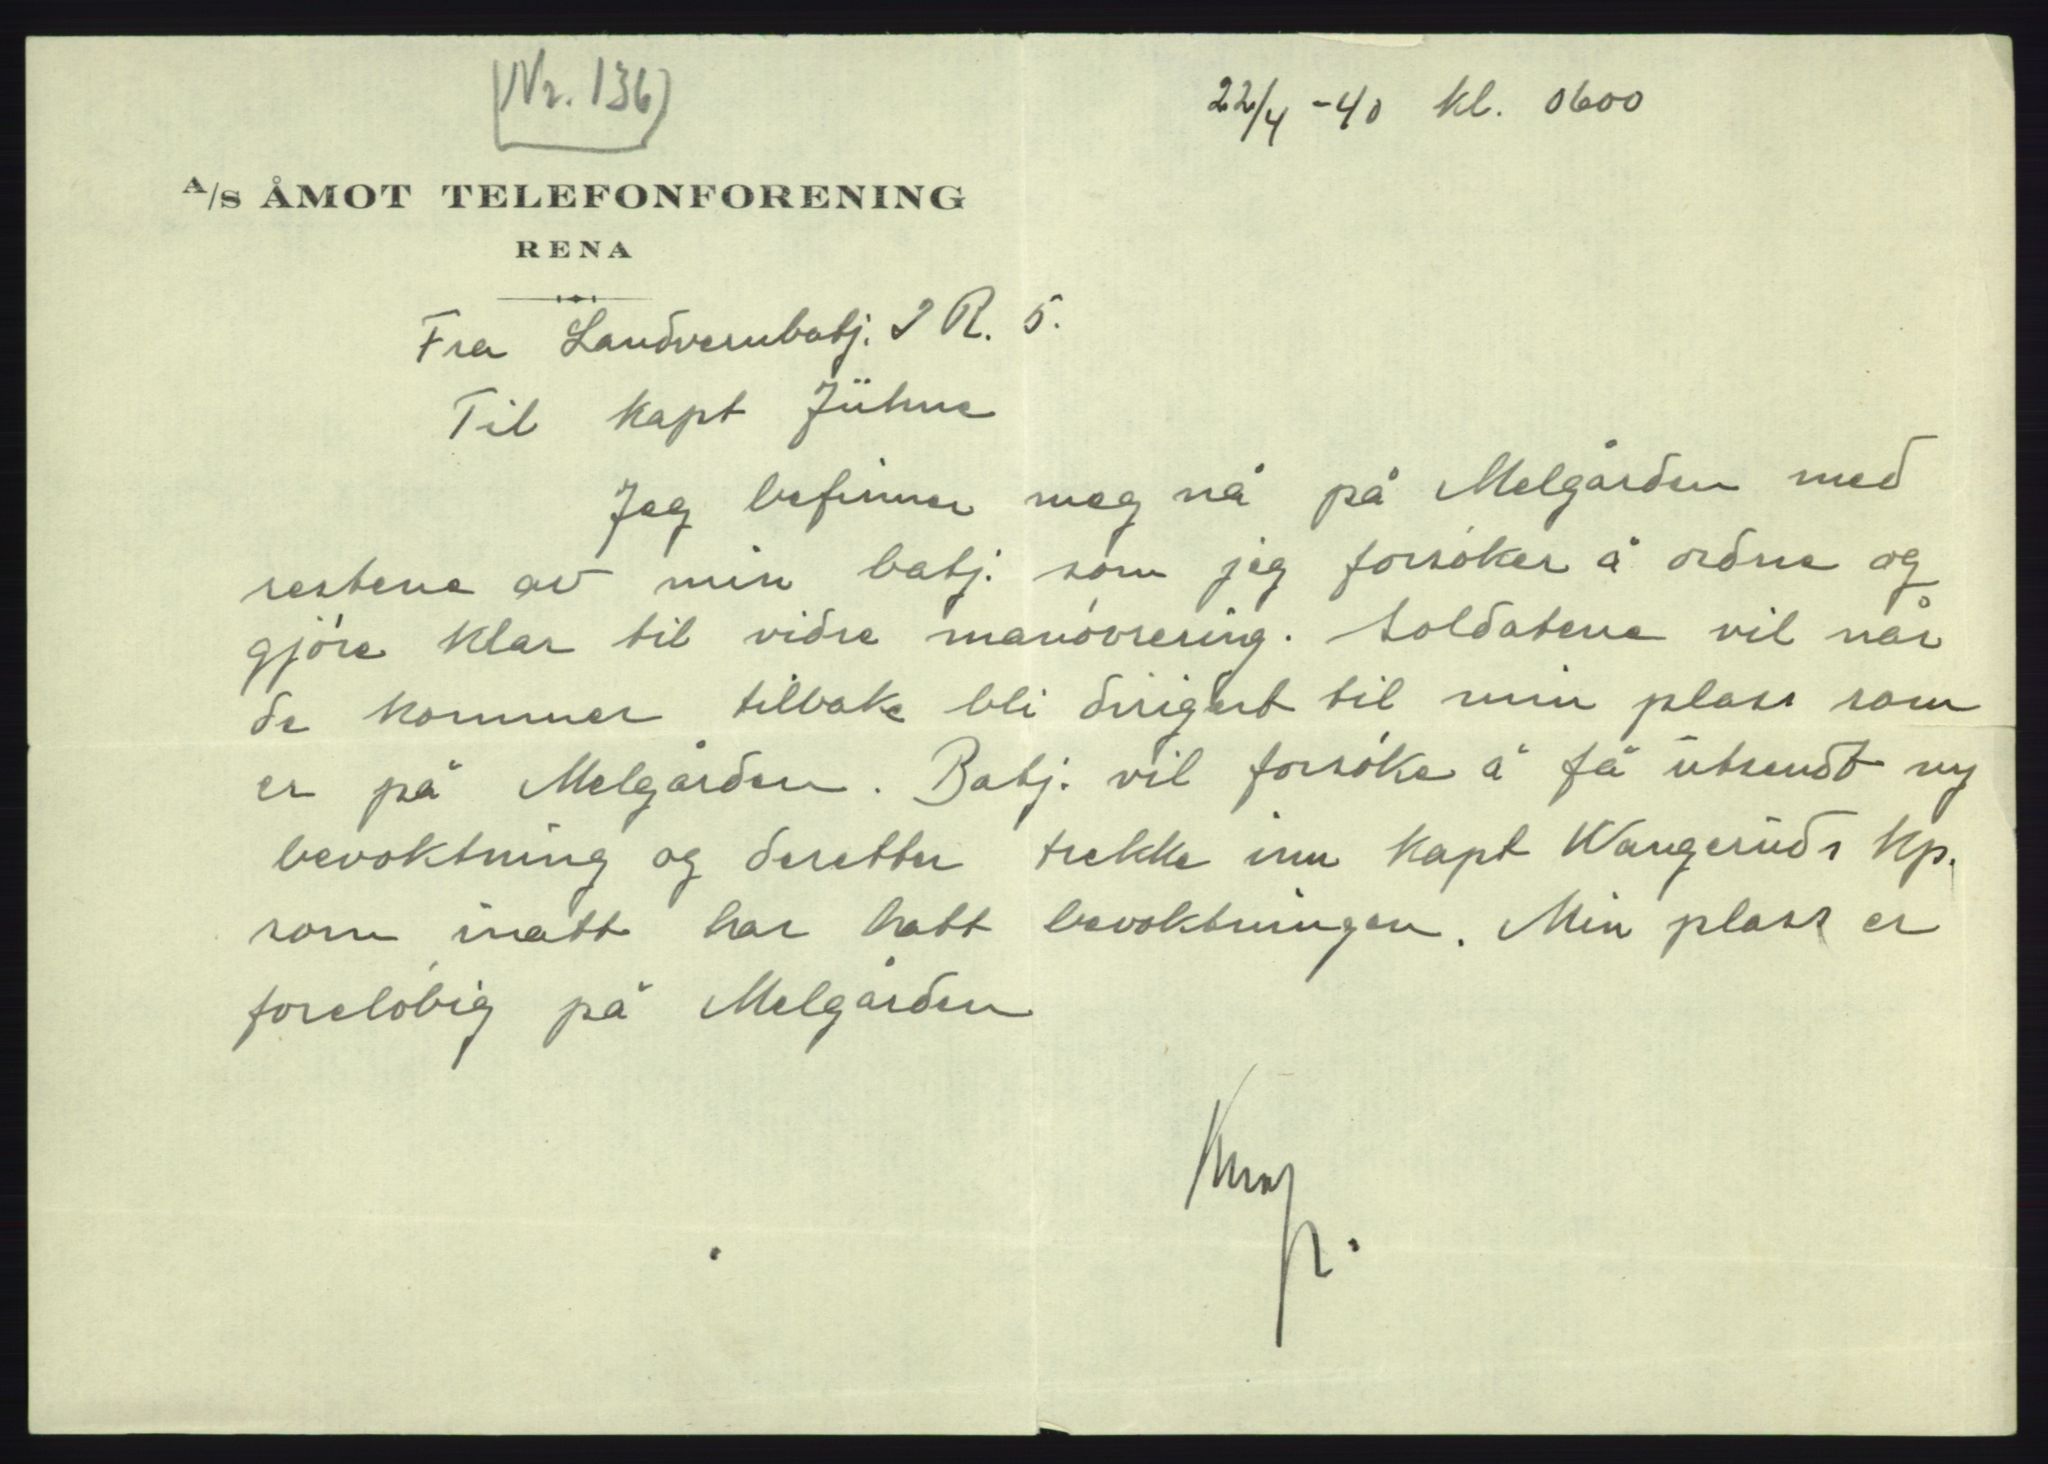 Nr. 136
22/4 -40 kl. 0600
A/S ÅMOT TELEFONFORENING
RENA
Fra Landvernbatj. I R. 5.
Til kapt Jühne
Jeg befinner meg nå på Melgården med
restene av min batj. som jeg forsöker å ordne og
gjöre klar til vidre manövrering. Soldatene vil når
de kommer tilbake bli dirigert til min plass som
er på Melgården. Batj. vil forsöke å få utsendt ny
bevoktning og deretter trekke inn kapt Wangeruds kp.
som inatt har hatt bevoktningen. Min plass er
forelöbig på Melgården